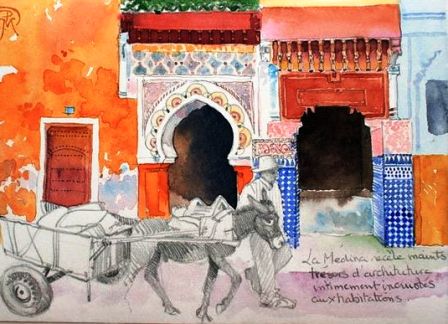 La Médina recèle maints
trésors d'architecture
intimement incrustés
aux habitations.